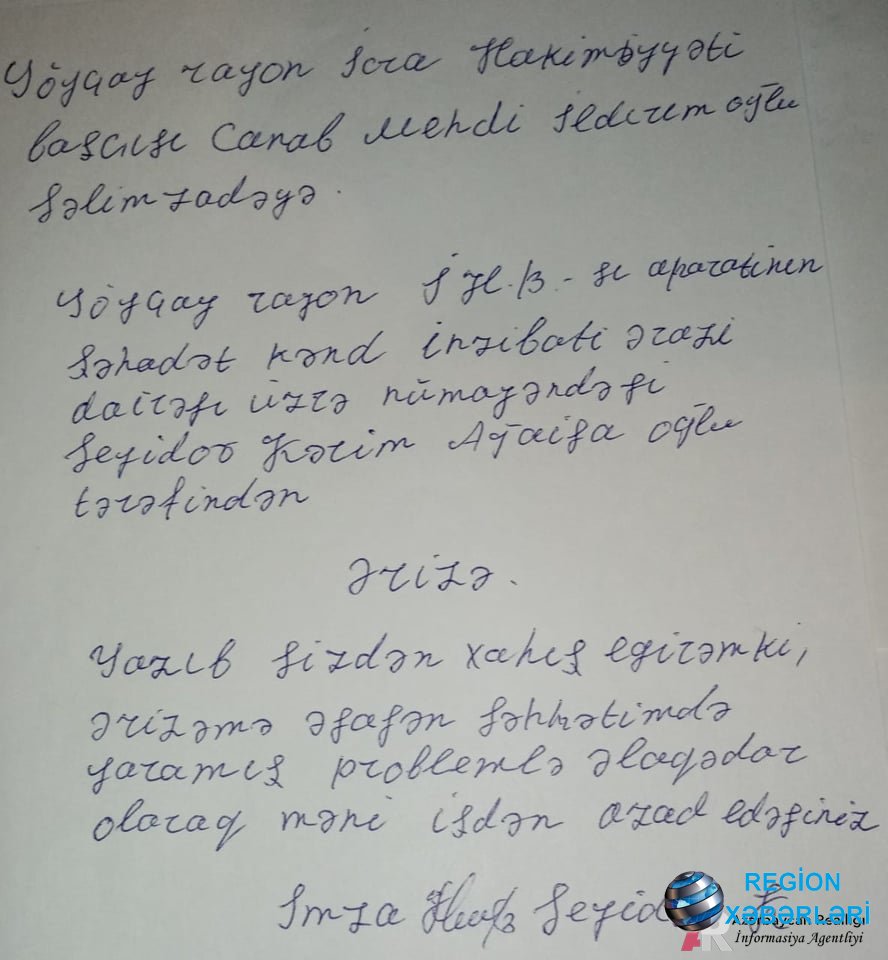 Göyçay rayon İcra Hakimiyyəti
başçısı Cənab Mehdi İldırım oğlu
Səlimzadəyə.
Göyçay rayon İ.H.B-sı aparatının
Şəhadət kənd inzibati ərazi
dairəsi üzrə nümayəndəsi
Seyidov Kərim Ağaisa oğlu
tərəfindən
Ərizə.
Yazıb Sizdən xahış egirəmki,
ərizəmə əsasən səhhətimdə
yaranmış problemlə əlaqədar
olaraq məni işdən azad edəsiniz
İmza
REGİON
XƏBƏRLƏRİ
Azərbaycan Reallığı
İnformasiya Agentliyi